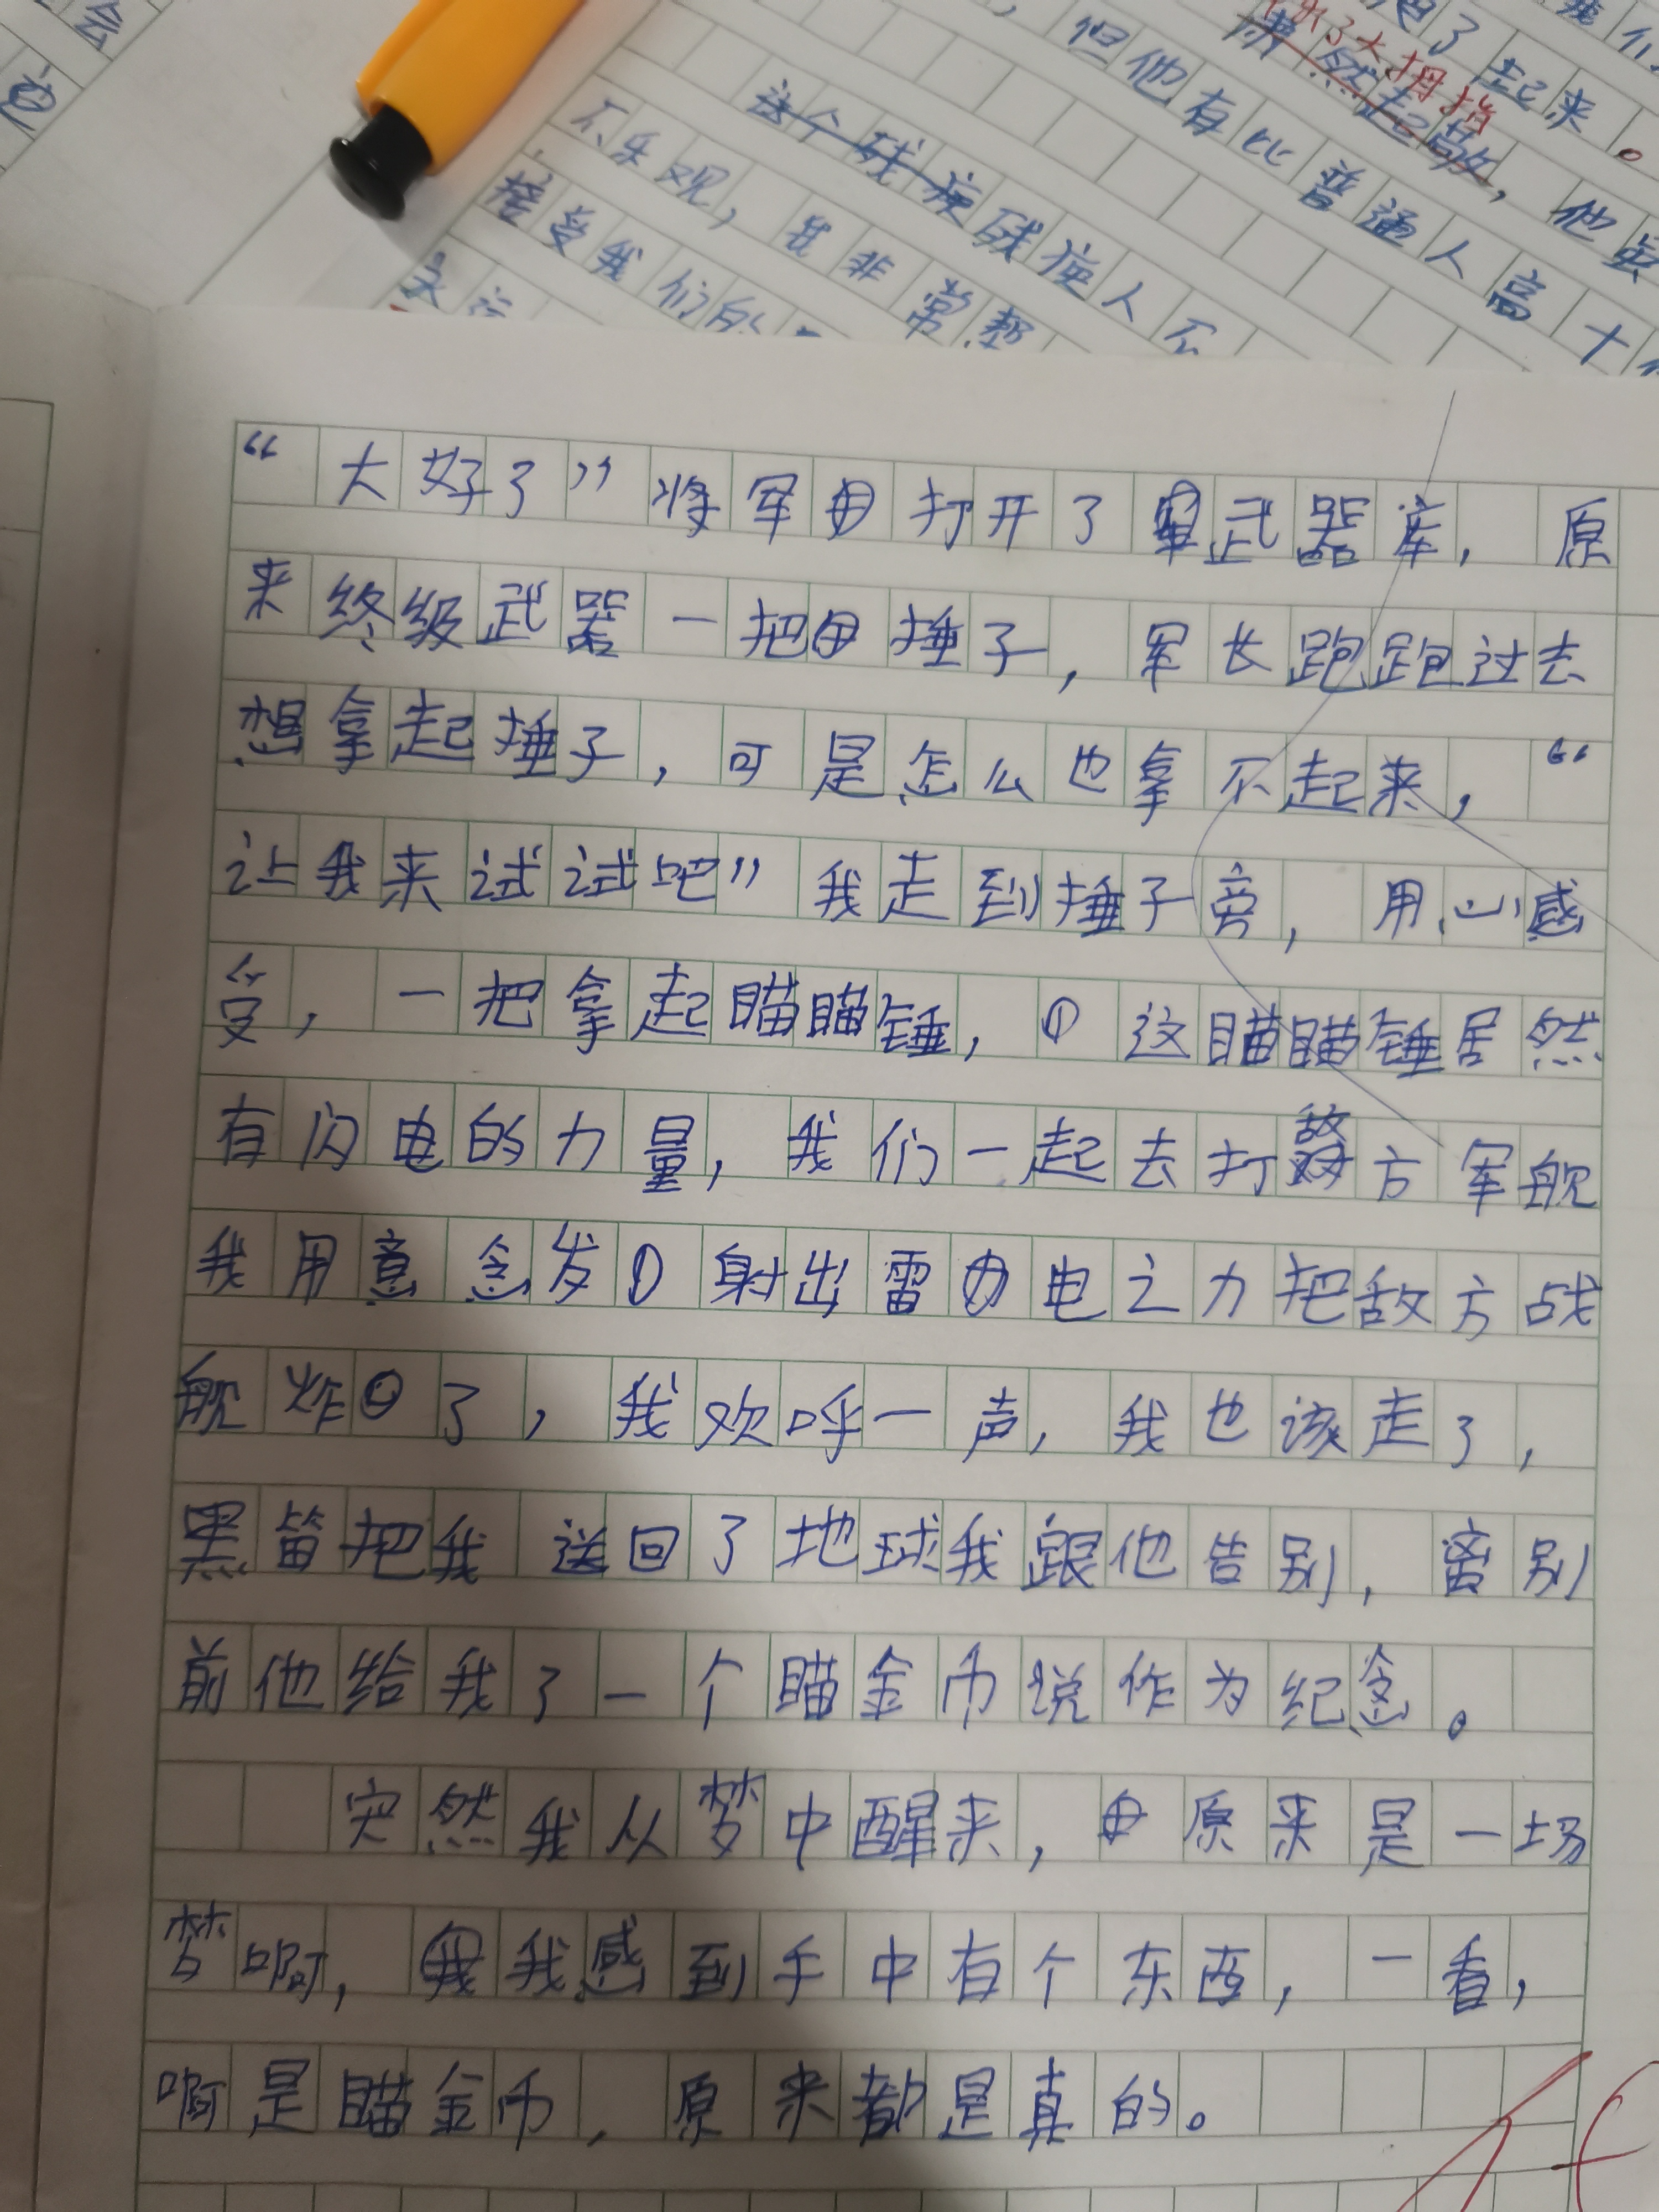 会
起来。
出了大拇指
肃然起敬，他虽
但他有比普通人高十
这个残疾残疾人不
不乐观，我非常
接受我们的
“大好了”将军打开了武器库，原
来终级武器一把捶子，军长跑跑过去
想拿起捶子，可是怎么也拿不起来，“
让我来试试吧”我走到捶子旁，用心感
受，一把拿起瞄瞄锤，这瞄瞄锤居然
有闪电的力量，我们一起去打敌方军舰
我用意念发射出雷电之力把敌方战
舰炸了，我欢呼一声，我也该走了，
黑笛把我送回了地球我跟他告别，离别
前他给我了一个瞄金币说作为纪念。
突然我从梦中醒来，原来是一场
梦啊，我感到手中有个东西，一看，
啊是瞄金币，原来都是真的。